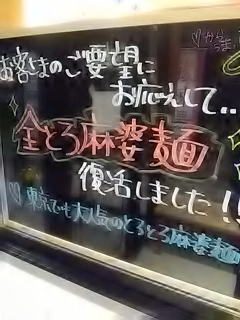 お客さまのご要望に
お応えして‥
♡から
うま
全とろ麻婆麺
復活しました!!
♡東京でも大人気のとろとろ麻婆麺